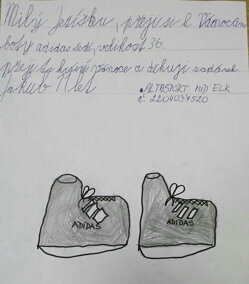 Milý Ježíšku, přeji si k Vánocům
boty adidas šedé, velikost 36.
Přeji ty krásné vánoce a děkuji za dárek
Jakub
ALTASPORT MID ELK
č: 2204034520
ADIDAS
ADIDAS